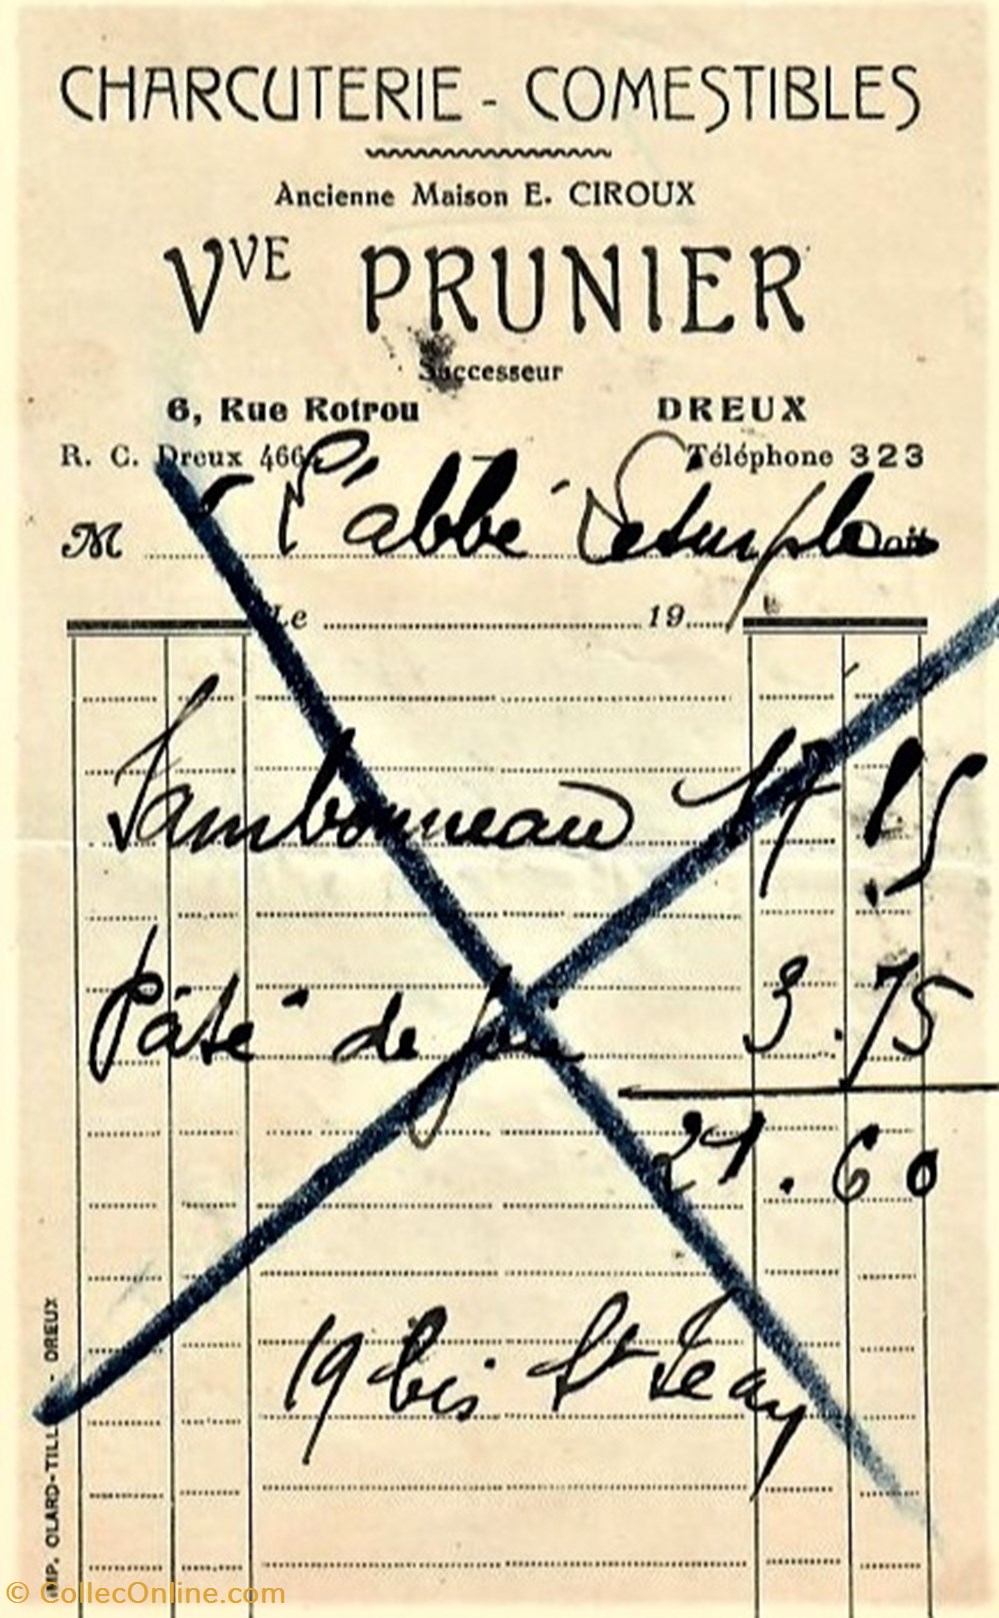 CHARCUTERIE - COMESTIBLES
Ancienne Maison E. CIROUX
VVE PRUNIER
Successeur
6, Rue Rotrou DREUX
R. C. Dreux 466 — Téléphone 323
M r l'abbé Doit
Le 19
Jambonneau 17.85
Pâté de foie 3.75
21.60
19 bis St Jean
IMP. OLARD-TILL - DREUX
© CollecOnline.com